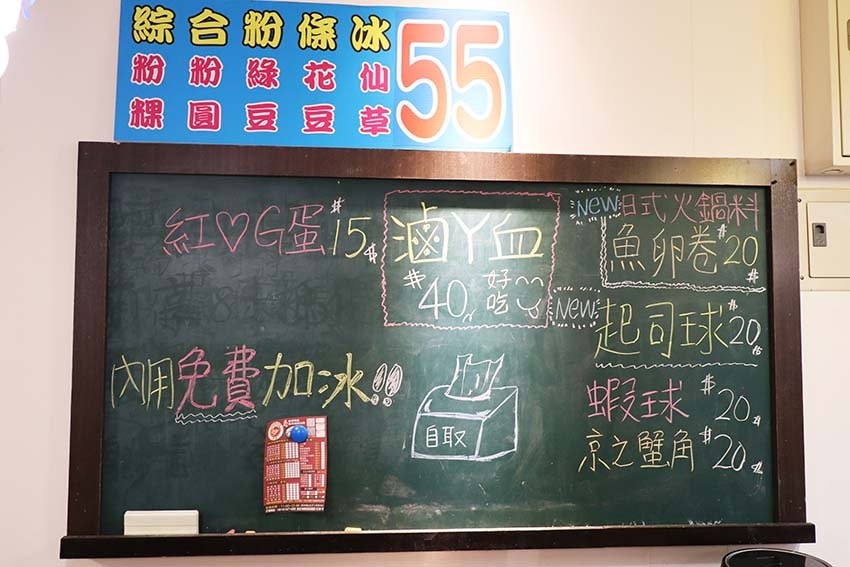 綜合粉條冰
粉粉綠花仙
粿圓豆豆草
55
紅♡G蛋$15
滷丫血
$40 好吃
NEW日式火鍋料
魚卵卷$20
NEW
起司球$20
蝦球$20
京之蟹角$20
內用免費加冰!!
自取